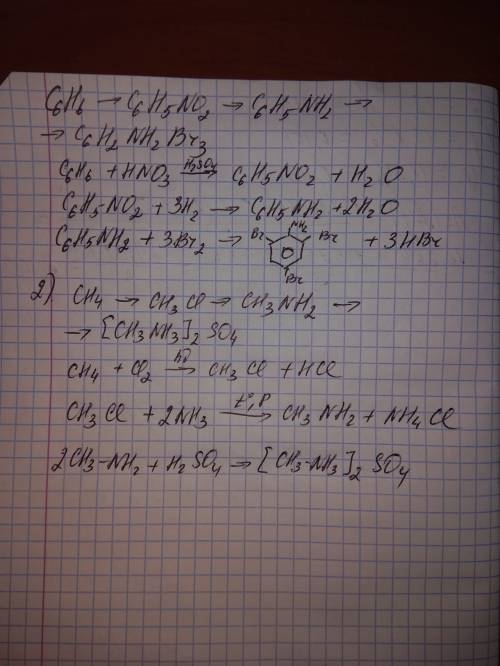 C6H6 → C6H5NO2 → C6H5NH2 →
→ C6H2NH2Br3
C6H6 + HNO3 H2SO4→ C6H5NO2 + H2O
C6H5NO2 + 3H2 → C6H5NH2 + 2H2O
C6H5NH2 + 3Br2 → Br NH2 Br Br + 3HBr
2) CH4 → CH3Cl → CH3NH2 →
→ [CH3NH3]2SO4
CH4 + Cl2 hν→ CH3Cl + HCl
CH3Cl + 2NH3 t°, P→ CH3NH2 + NH4Cl
2CH3-NH2 + H2SO4 → [CH3-NH3]2SO4